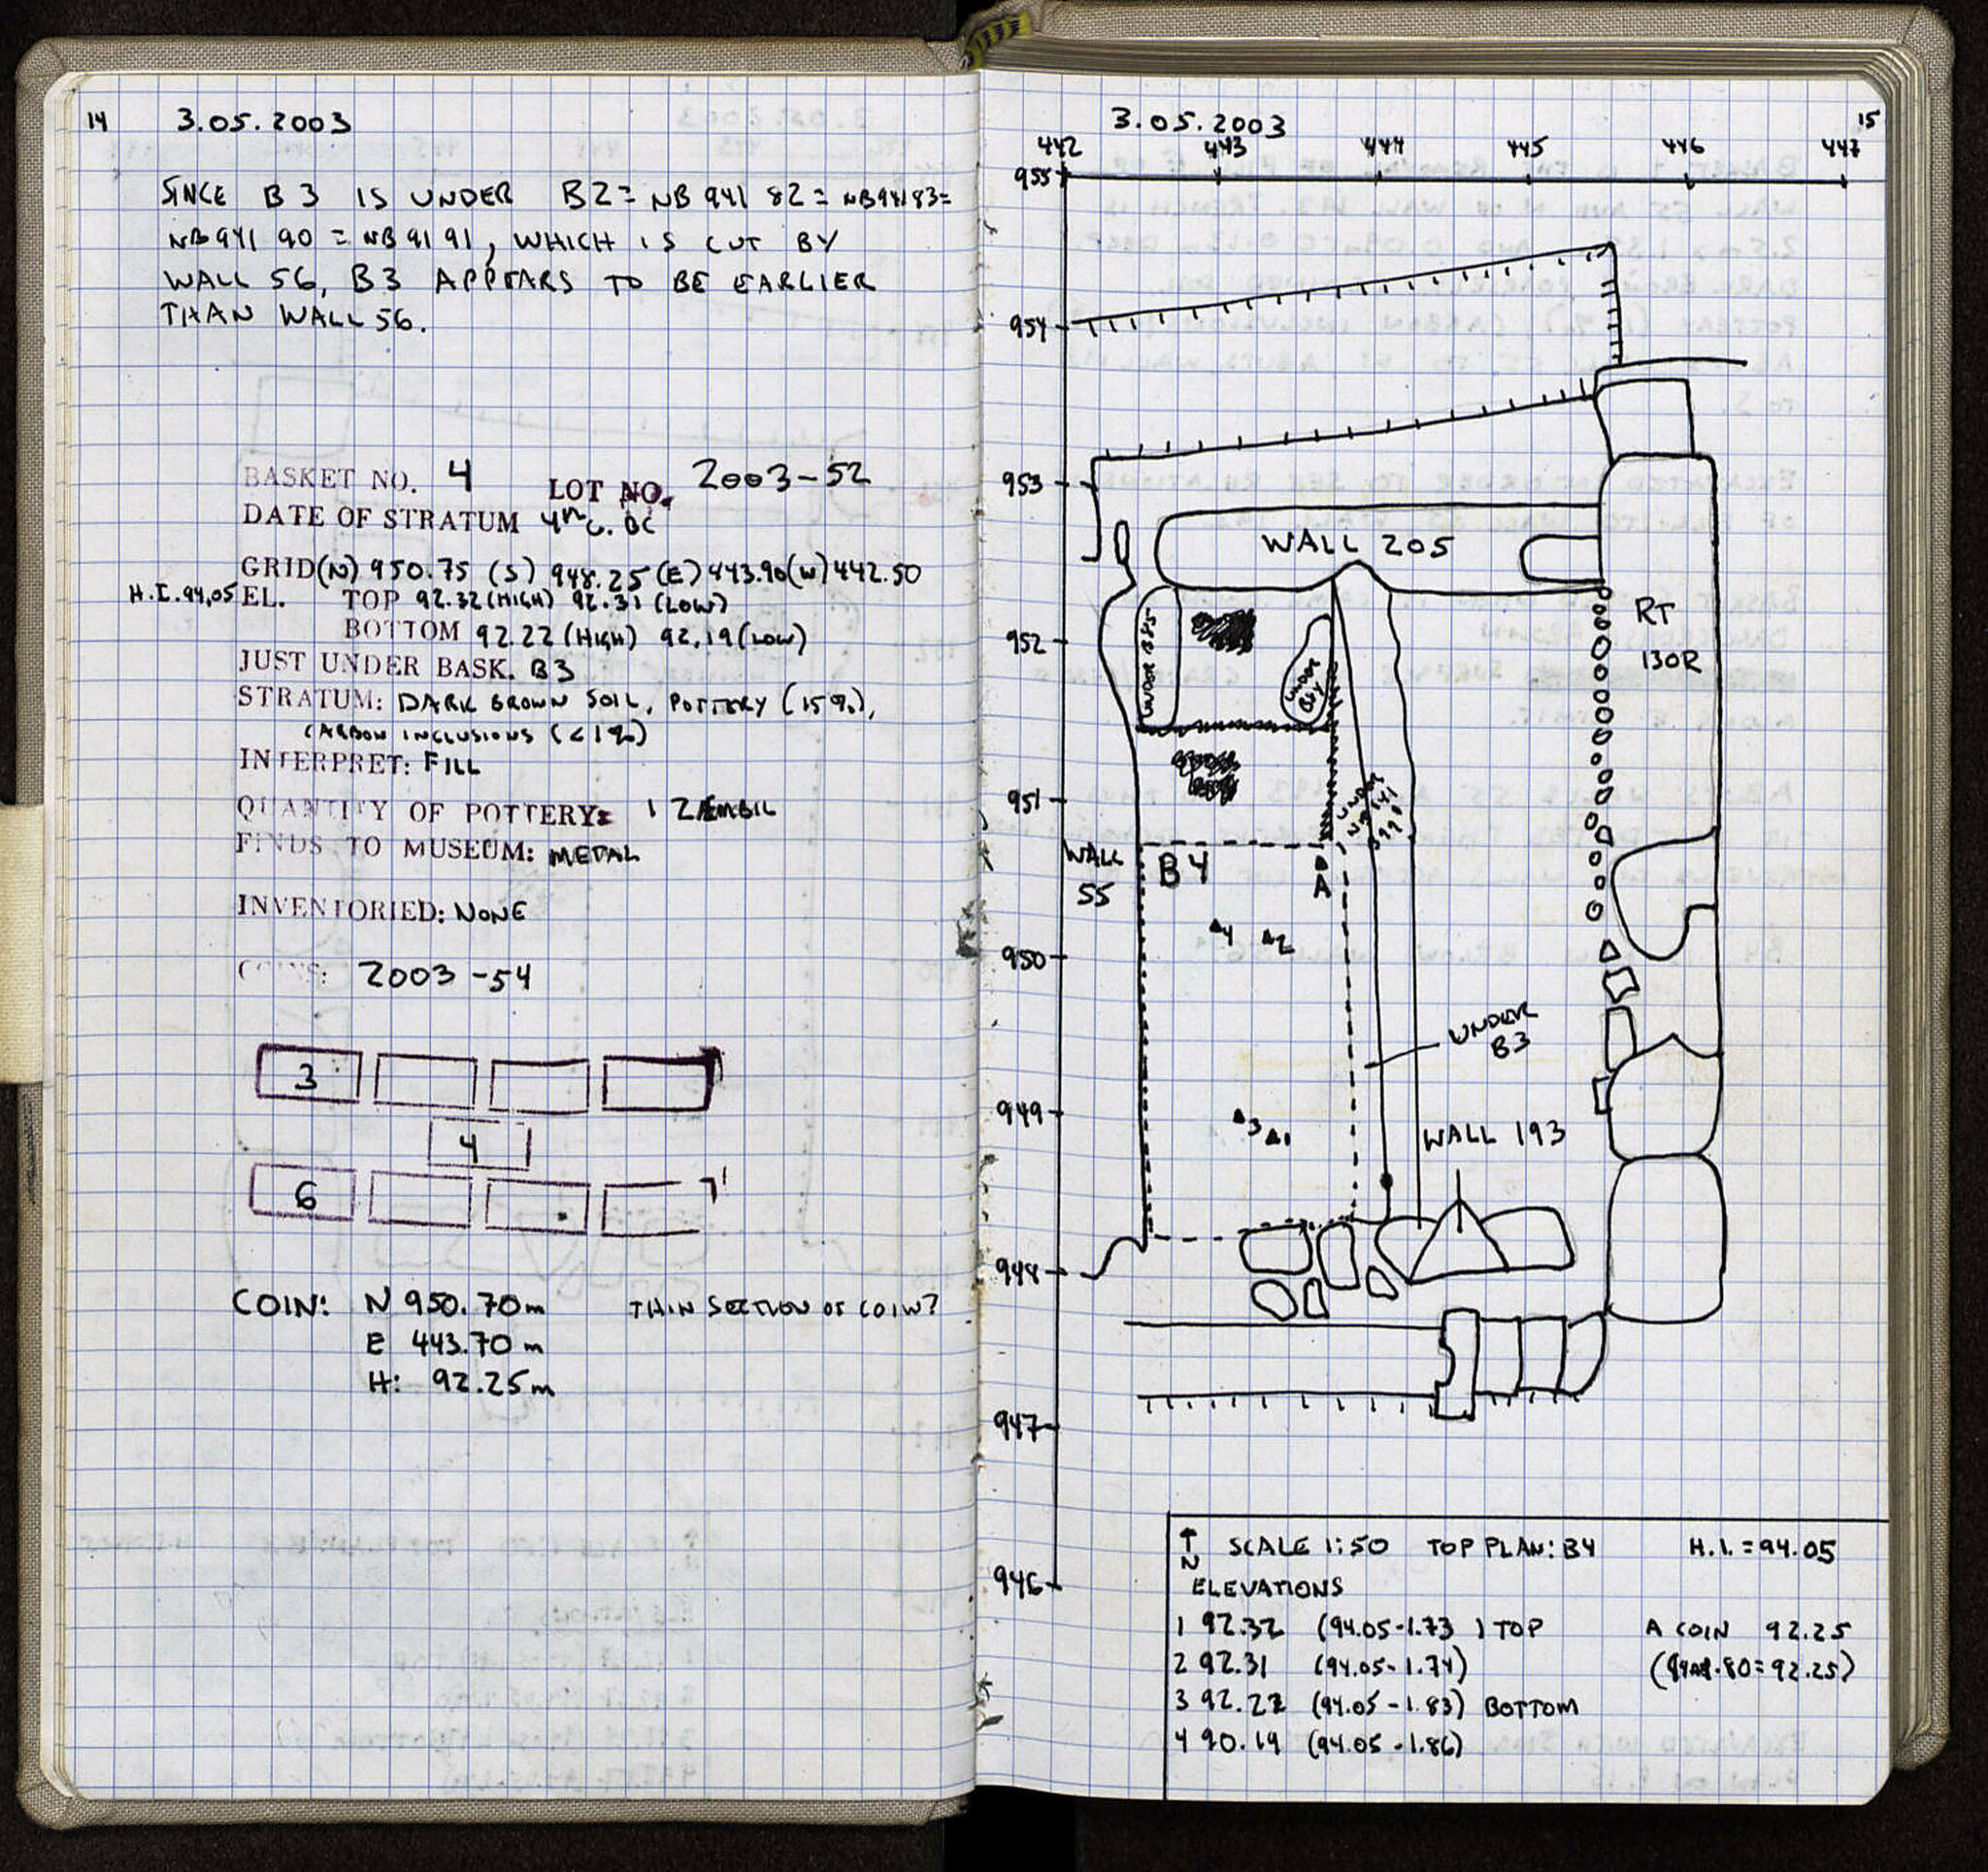 14 3.05.2003
SINCE B3 IS UNDER B2 = NB 941 82 = NB94183=
NB941 90 = NB9191, WHICH IS CUT BY
WALL 56, B3 APPEARS TO BE EARLIER
THAN WALL 56.
BASKET NO. 4 LOT NO. 2003-52
DATE OF STRATUM 4TH C. BC
GRID (N) 950.75 (S) 948.25 (E) 443.90 (W) 442.50
H.I. 94.05 EL. TOP 92.32 (HIGH) 92.31 (LOW)
BOTTOM 92.22 (HIGH) 92.19 (LOW)
JUST UNDER BASK. B3
STRATUM: DARK BROWN SOIL, POTTERY (15%),
CARBON INCLUSIONS (<1%)
INTERPRET: FILL
QUANTITY OF POTTERY: 1 ZEMBIL
FINDS TO MUSEUM: METAL
INVENTORIED: NONE
COINS: 2003-54
3
4
6
COIN: N 950.70m THIN SECTION OF COIN?
E 443.70m
H: 92.25m
3.05.2003 15
442 443 444 445 446 447
955
954
953
WALL 205
952
UNDER
RT
130R
UNDER
951
UNDER
WALL
55
B4
A
4 2
950
UNDER
B3
949
3 1
WALL 193
948
947
946
↑
N
SCALE 1:50 TOP PLAN: B4 H.I. = 94.05
ELEVATIONS
1 92.32 (94.05-1.73) TOP A COIN 92.25
2 92.31 (94.05-1.74) .80=92.25)
3 92.22 (94.05-1.83) BOTTOM
4 90.19 (94.05-1.86)